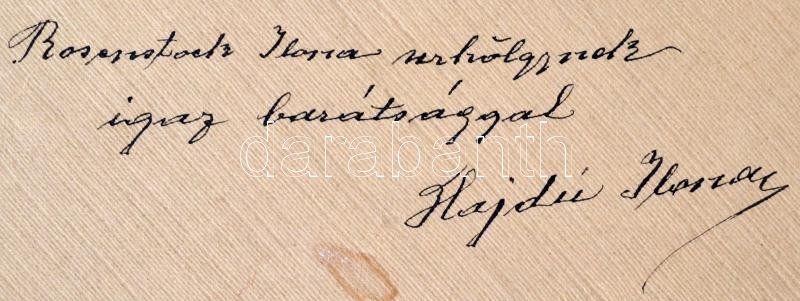 Rosenstock Ilona urhölgynek
igaz barátsággal
darabanth
Hajdú Ilona